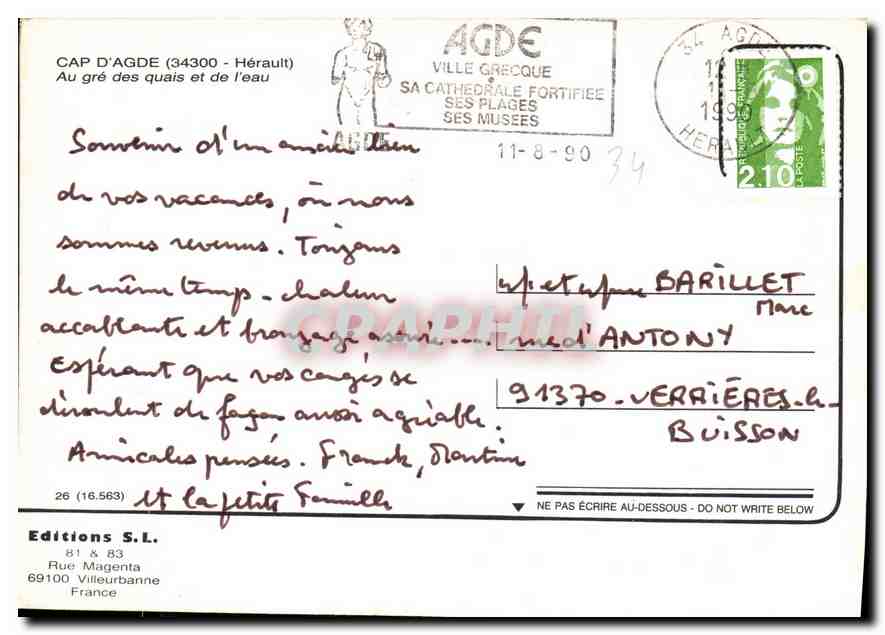 CAP D'AGDE (34300 - Hérault)
Au gré des quais et de l'eau
AGDE
AGDE
VILLE GRECQUE
SA CATHEDRALE FORTIFIEE
SES PLAGES
SES MUSEES
11-8-90
34
34 AGDE
12
1990
HERAULT
REPUBLIQUE FRANÇAISE
2,10
LA POSTE
Souvenir d'un ancien lieu
de vos vacances, où nous
sommes revenus. Toujours
le même temp - chaleur
accablante et bronzage assuré....
Espérant que vos congés se
déroulent de façon aussi agréable.
Amicales pensées. Franck, Martine
et la petite famille
et BARILLET
Marc
rue d'ANTONY
91370 - VERRIÈRES-le-
BUISSON
CPAPHIL
26 (16.563)
NE PAS ÉCRIRE AU-DESSOUS - DO NOT WRITE BELOW
Editions S.L.
81 & 83
Rue Magenta
69100 Villeurbanne
France